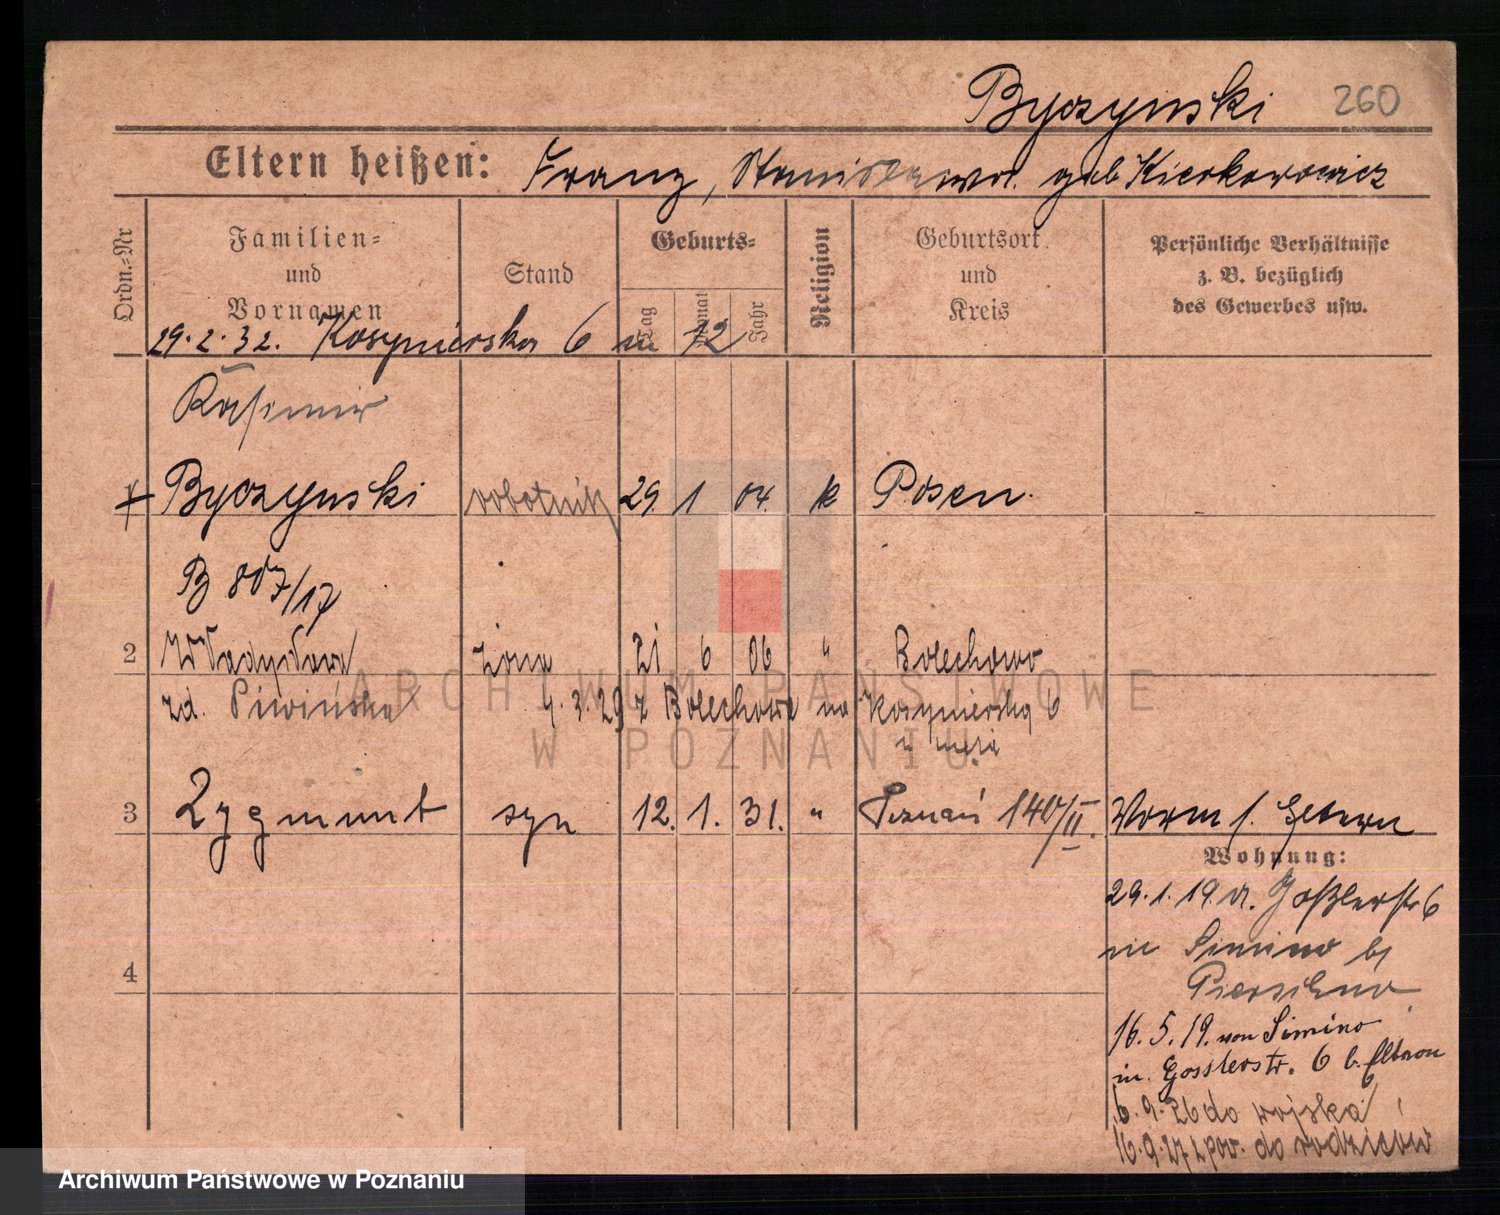 Byczynski 260
Eltern heißen: Franz, Stanislawa. geb Kierkowicz
Ordn.-Nr
Familien-
und
Vornamen
Stand
Geburts-
Tag
Monat
Jahr
Religion
Geburtsort
und
Kreis
Persönliche Verhältnisse
z. B. bezüglich
des Gewerbes usw.
29.2.32. Kosynierska 6 m 12
Kasimir
Byczynski robotnik 29 1 04. k Posen.
B 807/17
2 Władysława żona 21 6 06 " Bolechowo
zd. Piwińska 4.3.29 z Bolechowa na Kosynierską 6
3 Zygmunt syn 12. 1. 31. " Poznań 140/II. Worm s. Eltern
Wohnung:
29.1.19 v. Goßlerstr 6
in Simino bei
16.5.19. von Simino
in. Gosslerstr. 6 b. Eltern
4
6.9.26 do wojska
16.9.27 z pow. do rodziców
ARCHIWUM PAŃSTWOWE
W POZNANIU
Archiwum Państwowe w Poznaniu